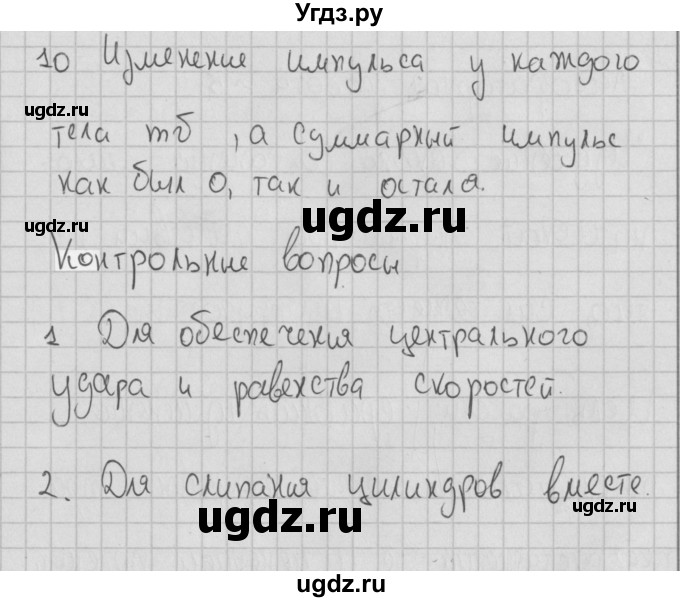 Угдз.ру
10 Изменение импульса у каждого
ugdz.ru
тела mб, а суммарный импульс
как был 0, так и остался.
ugdz.ru
ugdz.ru
Контрольные вопросы
1 Для обеспечения центрального
удара и равенства скоростей.
2. Для слипания цилиндров вместе.
ugdz.ru
ugdz.ru